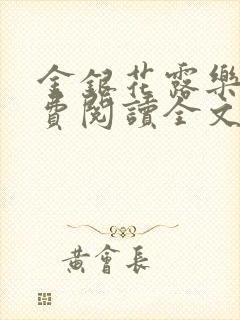 金銀花露樂
費閱讀全文
黃會長